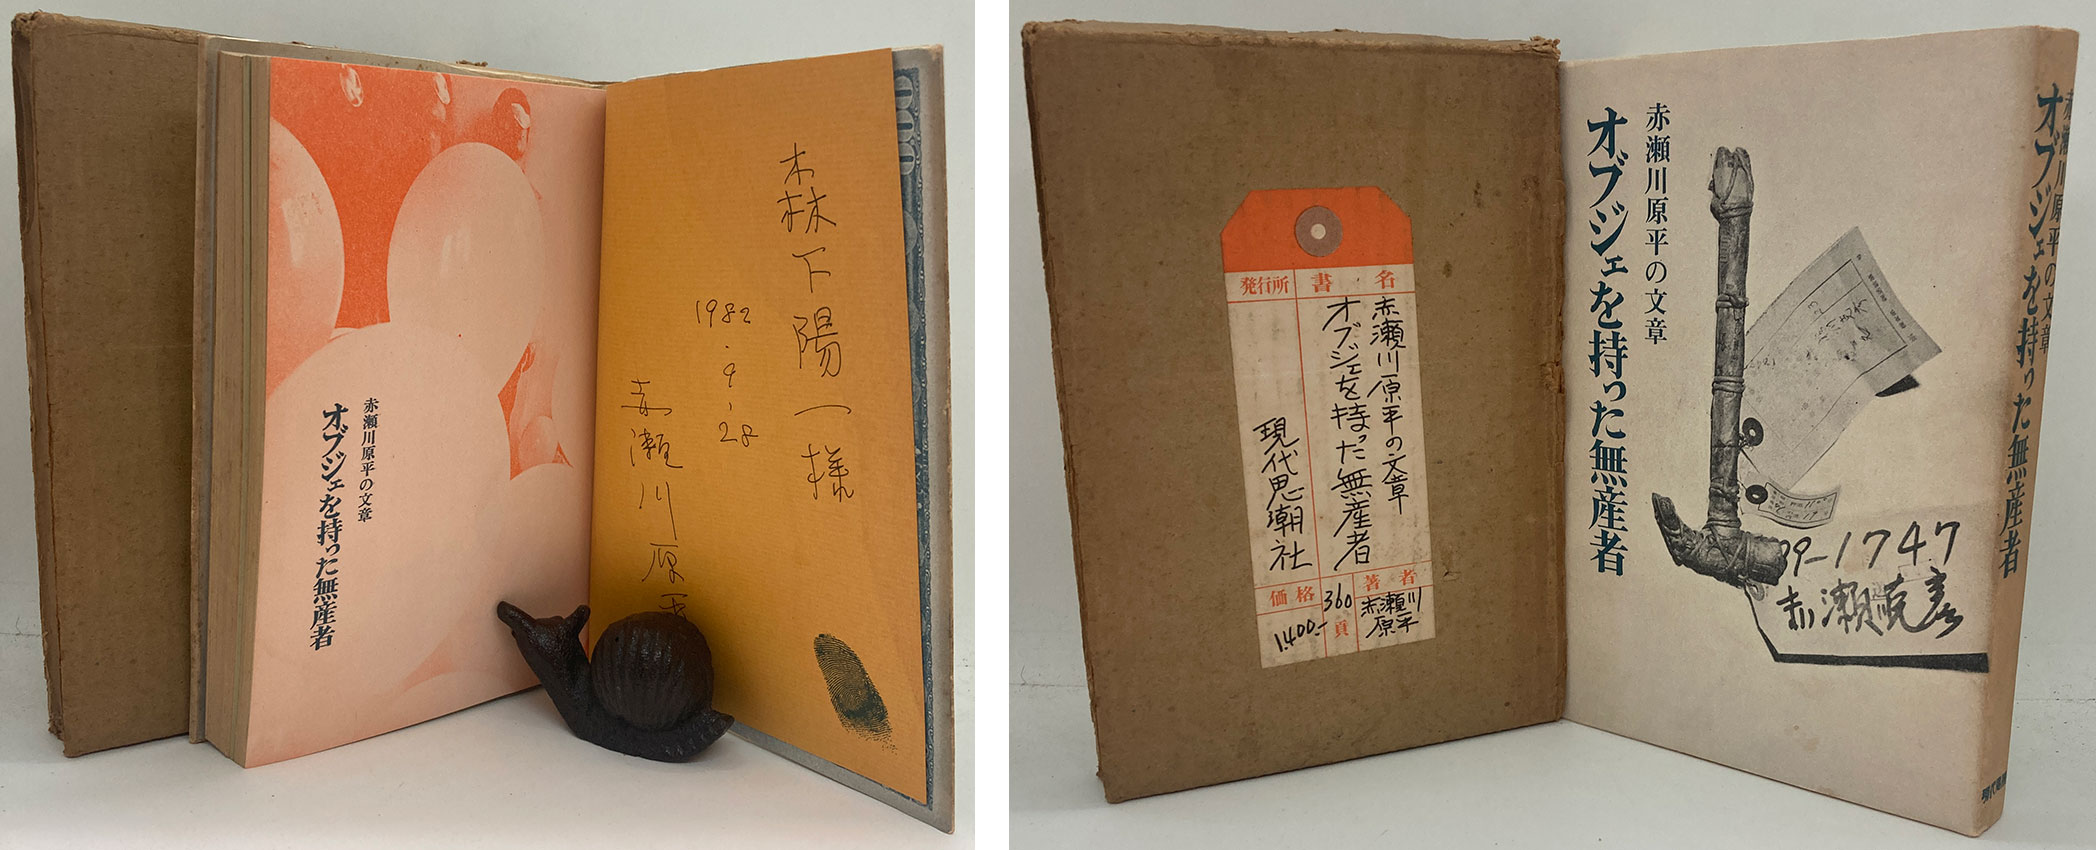 赤瀬川原平の文章
オブジェを持った無産者
森下陽一様
1982.9.28
赤瀬川原平
書名
赤瀬川原平の文章
オブジェを持った無産者
発行所
現代思潮社
著者
赤瀬川
原平
360
頁
価格
1.400-
赤瀬川原平の文章
オブジェを持った無産者
99-1747
赤瀬川原平の文章
オブジェを持った無産者